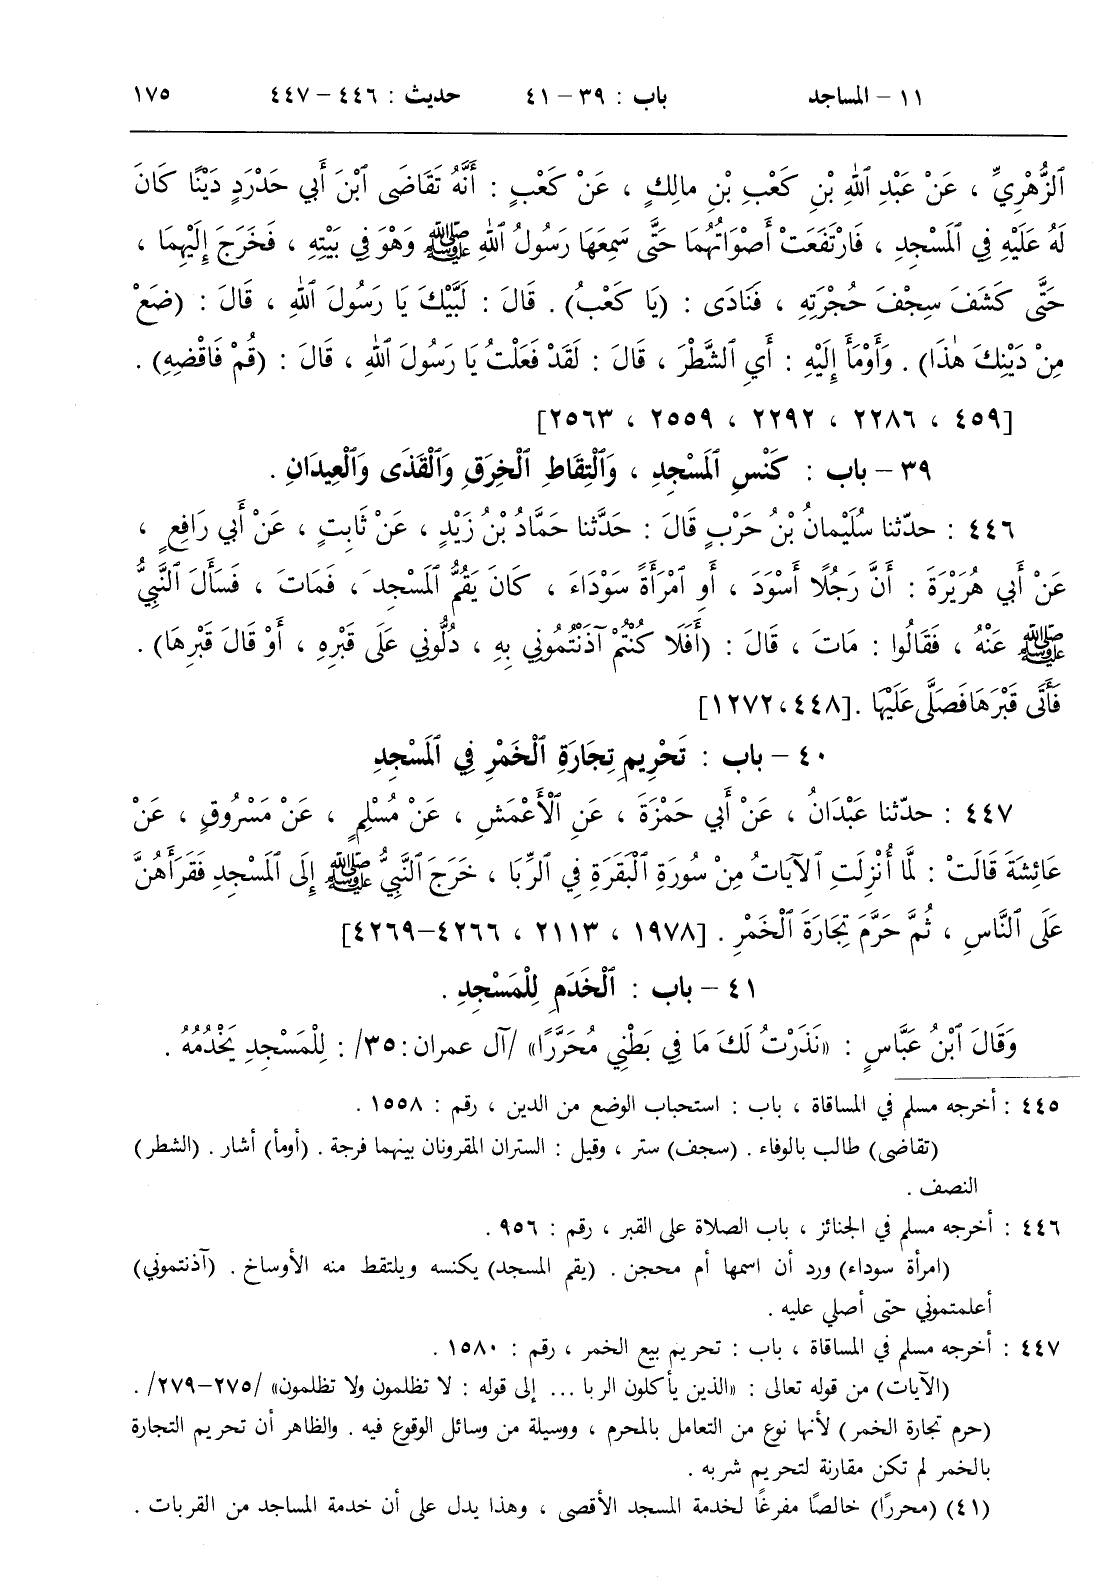 ١١ - المساجد باب : ٣٩ - ٤١ حديث : ٤٤٦ - ٤٤٧ ١٧٥
ٱلزُّهْرِيِّ ، عَنْ عَبْدِ ٱللهِ بْنِ كَعْبِ بْنِ مالِكٍ ، عَنْ كَعْبٍ : أَنَّهُ تَقَاضَى ٱبْنَ أَبي حَدْرَدٍ دَيْنًا كَانَ
لَهُ عَلَيْهِ فِي ٱلْمَسْجِدِ ، فَارْتَفَعَتْ أَصْوَاتُهُمَا حَتَّى سَمِعَهَا رَسُولُ ٱللهِ ﷺ وَهْوَ فِي بَيْتِهِ ، فَخَرَجَ إِلَيْهِمَا ،
حَتَّى كَشَفَ سِجْفَ حُجْرَتِهِ ، فَنَادَى : (يَا كَعْبُ) . قَالَ : لَبَّيْكَ يَا رَسُولَ ٱللهِ ، قَالَ : (ضَعْ
مِنْ دَيْنِكَ هٰذَا) . وَأَوْمَأَ إِلَيْهِ : أَيِ ٱلشَّطْرَ ، قَالَ : لَقَدْ فَعَلْتُ يَا رَسُولَ ٱللهِ ، قَالَ : (قُمْ فَاقْضِهِ) .
[٤٥٩ ، ٢٢٨٦ ، ٢٢٩٢ ، ٢٥٥٩ ، ٢٥٦٣]
٣٩ - باب : كَنْسِ ٱلْمَسْجِدِ ، وَٱلْتِقَاطِ ٱلْخِرَقِ وَٱلْقَذَى وَٱلْعِيدَانِ .
٤٤٦ : حدّثنا سُلَيْمانُ بْنُ حَرْبٍ قَالَ : حَدَّثَنا حَمَّادُ بْنُ زَيْدٍ ، عَنْ ثَابِتٍ ، عَنْ أَبي رَافِعٍ ،
عَنْ أَبي هُرَيْرَةَ : أَنَّ رَجُلًا أَسْوَدَ ، أَوِ ٱمْرَأَةً سَوْدَاءَ ، كَانَ يَقُمُّ ٱلْمَسْجِدَ ، فَمَاتَ ، فَسَأَلَ ٱلنَّبِيُّ
ﷺ عَنْهُ ، فَقَالُوا : مَاتَ ، قَالَ : (أَفَلَا كُنْتُمْ آذَنْتُمُونِي بِهِ ، دُلُّونِي عَلَى قَبْرِهِ ، أَوْ قَالَ قَبْرِهَا) .
فَأَتَى قَبْرَهَا فَصَلَّى عَلَيْهَا . [٤٤٨ ، ١٢٧٢]
٤٠ - باب : تَحْرِيمِ تِجَارَةِ ٱلْخَمْرِ فِي ٱلْمَسْجِدِ
٤٤٧ : حدّثنا عَبْدَانُ ، عَنْ أَبي حَمْزَةَ ، عَنِ ٱلْأَعْمَشِ ، عَنْ مُسْلِمٍ ، عَنْ مَسْرُوقٍ ، عَنْ
عَائِشَةَ قَالَتْ : لَمَّا أُنْزِلَتِ ٱلْآيَاتُ مِنْ سُورَةِ ٱلْبَقَرَةِ فِي ٱلرِّبَا ، خَرَجَ ٱلنَّبِيُّ ﷺ إِلَى ٱلْمَسْجِدِ فَقَرَأَهُنَّ
عَلَى ٱلنَّاسِ ، ثُمَّ حَرَّمَ تِجَارَةَ ٱلْخَمْرِ . [١٩٧٨ ، ٢١١٣ ، ٤٢٦٦-٤٢٦٩]
٤١ - باب : ٱلْخَدَمِ لِلْمَسْجِدِ .
وَقَالَ ٱبْنُ عَبَّاسٍ : «نَذَرْتُ لَكَ مَا فِي بَطْنِي مُحَرَّرًا» /آل عمران : ٣٥/ : لِلْمَسْجِدِ يَخْدُمُهُ .
٤٤٥ : أخرجه مسلم في المساقاة ، باب : استحباب الوضع من الدين ، رقم : ١٥٥٨ .
(تقاضى) طالب بالوفاء . (سجف) ستر ، وقيل : الستران المقرونان بينهما فرجة . (أومأ) أشار . (الشطر)
النصف .
٤٤٦ : أخرجه مسلم في الجنائز ، باب الصلاة على القبر ، رقم : ٩٥٦ .
(امرأة سوداء) ورد أن اسمها أم محجن . (يقم المسجد) يكنسه ويلتقط منه الأوساخ . (آذنتموني)
أعلمتموني حتى أصلي عليه .
٤٤٧ : أخرجه مسلم في المساقاة ، باب : تحريم بيع الخمر ، رقم : ١٥٨٠ .
(الآيات) من قوله تعالى : «الذين يأكلون الربا ... إلى قوله : لا تظلمون ولا تظلمون» /٢٧٥-٢٧٩/ .
(حرم تجارة الخمر) لأنها نوع من التعامل بالمحرم ، ووسيلة من وسائل الوقوع فيه . والظاهر أن تحريم التجارة
بالخمر لم تكن مقارنة لتحريم شربه .
(٤١) (محررًا) خالصًا مفرغًا لخدمة المسجد الأقصى ، وهذا يدل على أن خدمة المساجد من القربات .